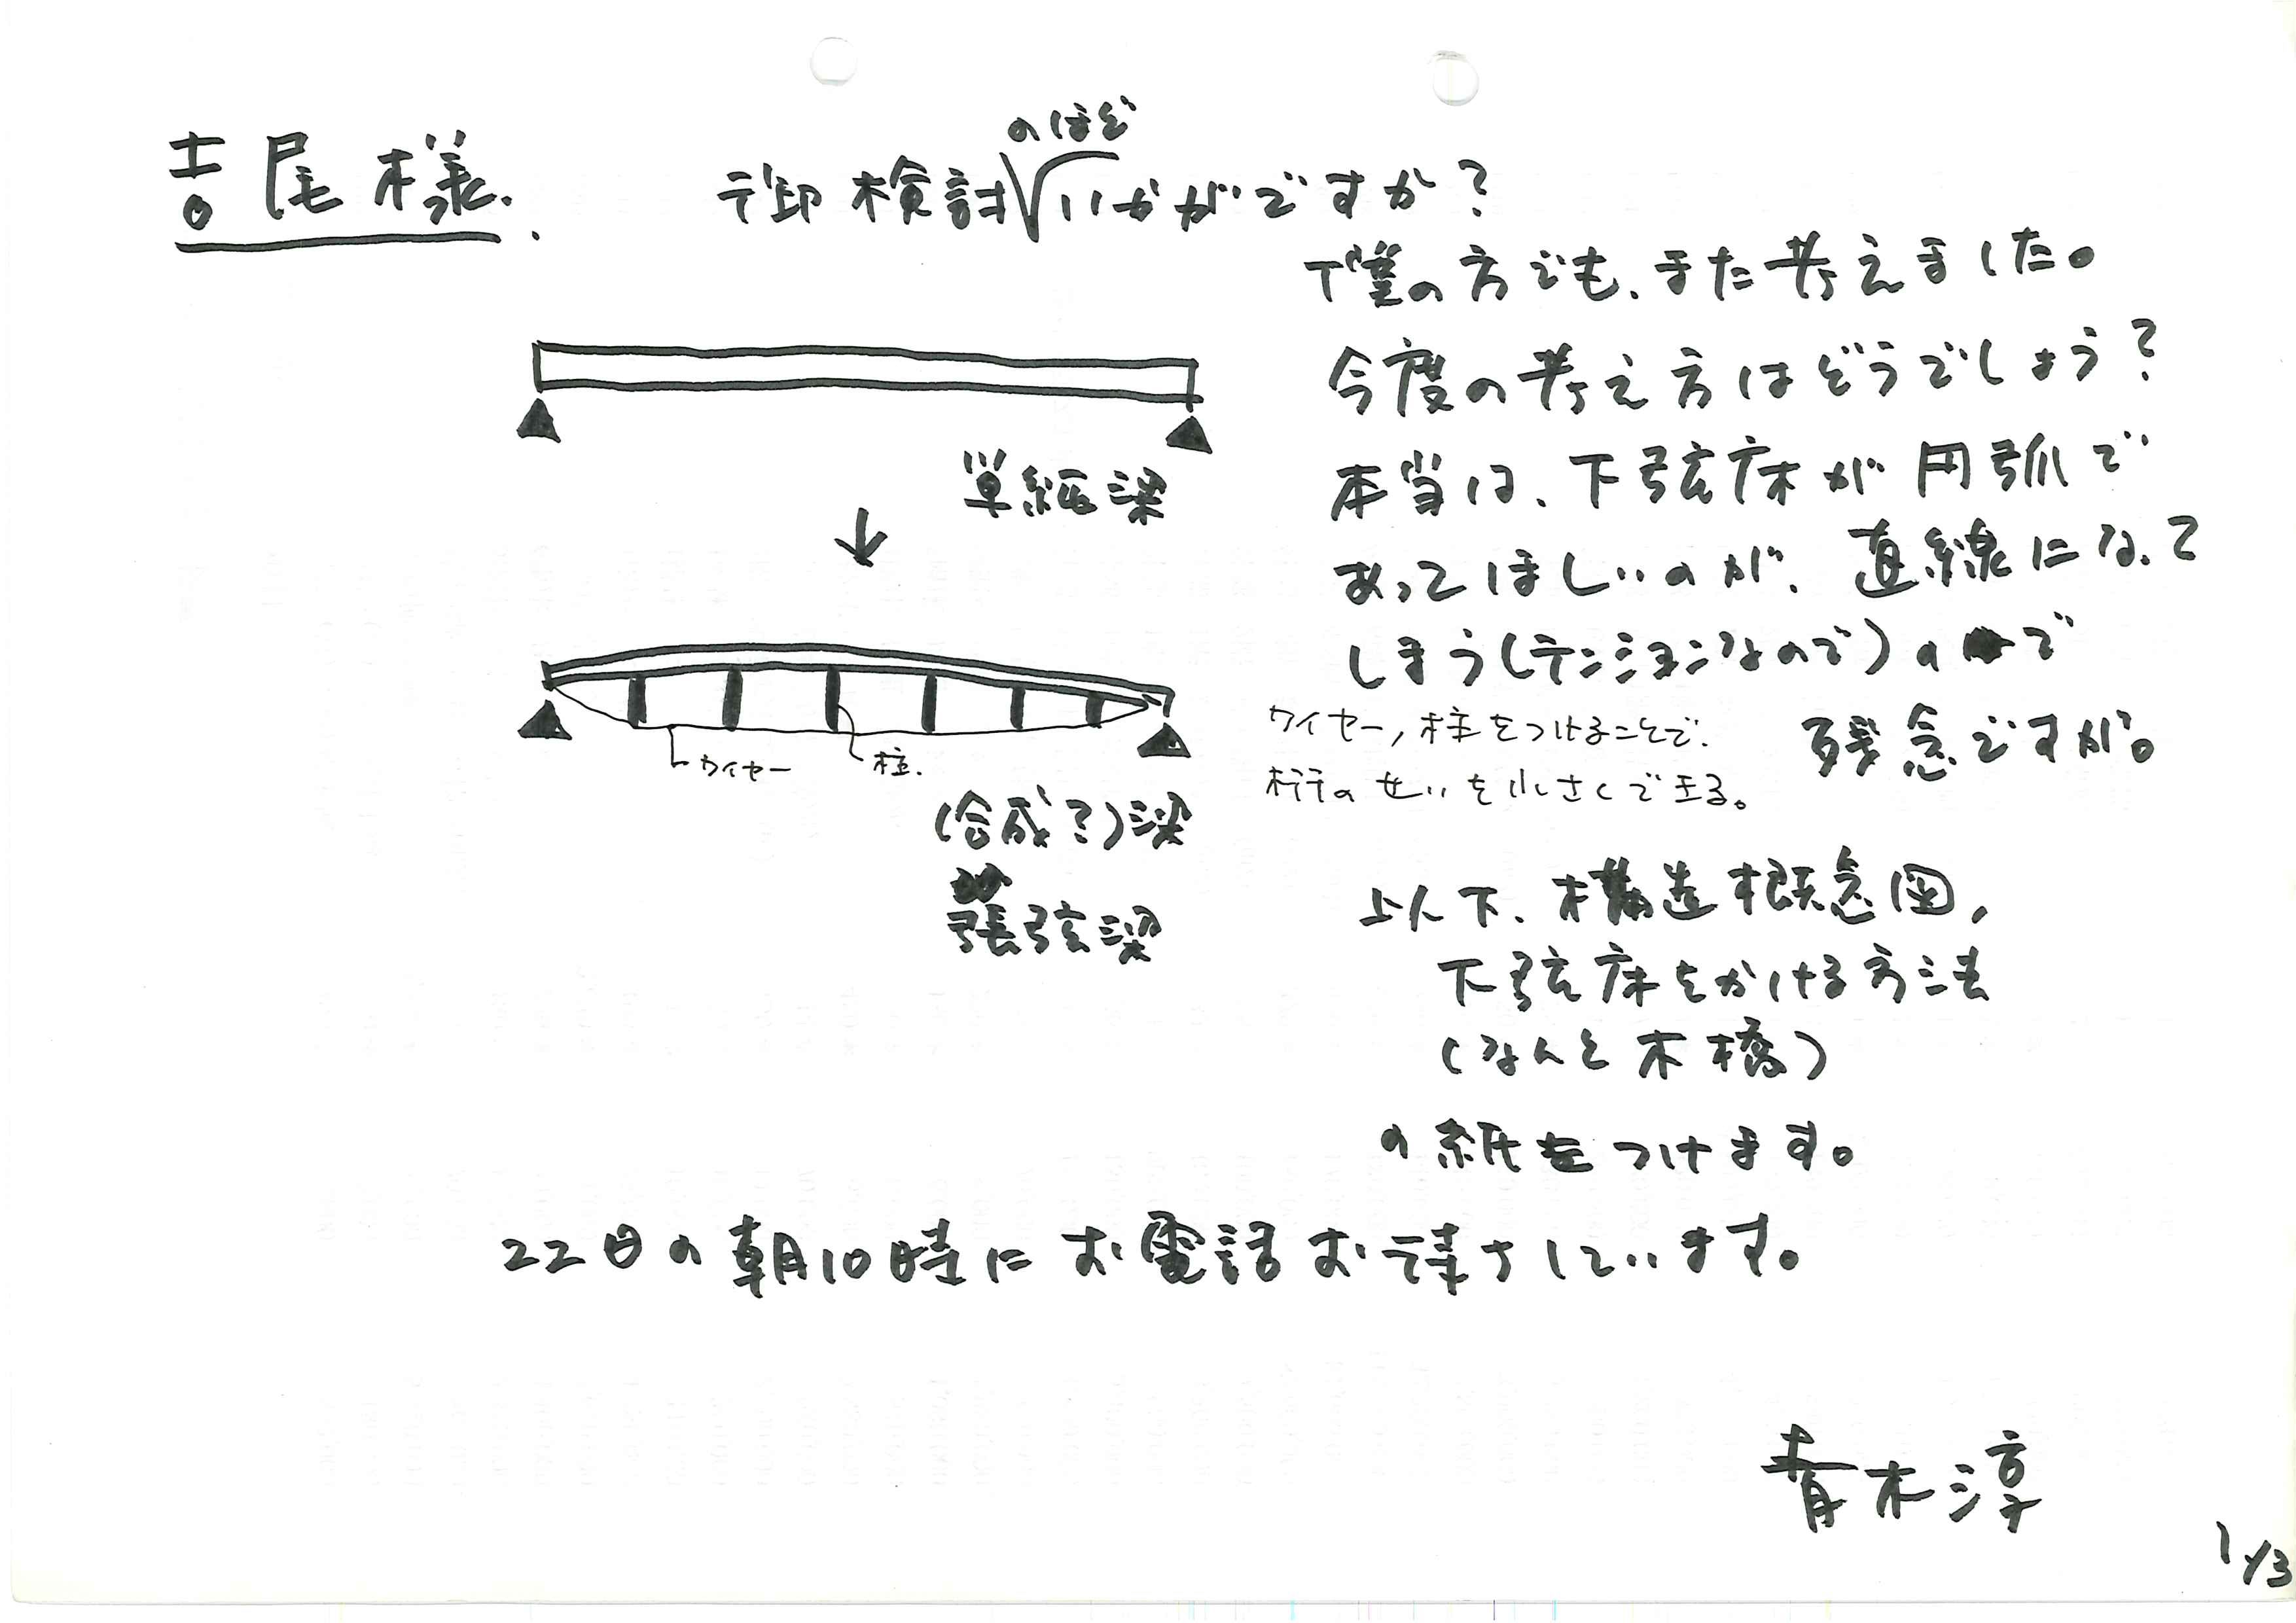 吉尾様.
のほど
御検討いかがですか?
僕の方でも、また考えました。
今度の考え方はどうでしょう?
本当は、下弦床が円弧で
あってほしいのが、直線になって
しまう(テンションなので)ので
残念ですが。
単純梁
↓
ワイヤー
柱.
(合成?)梁
張弦梁
ワイヤー, 柱をつけることで.
桁のせいを小さくできる。
以下、構造概念図,
下弦床をかける方法
(なんと木橋)
の紙をつけます。
22日の朝10時にお電話お待ちしています。
青木淳
1/3